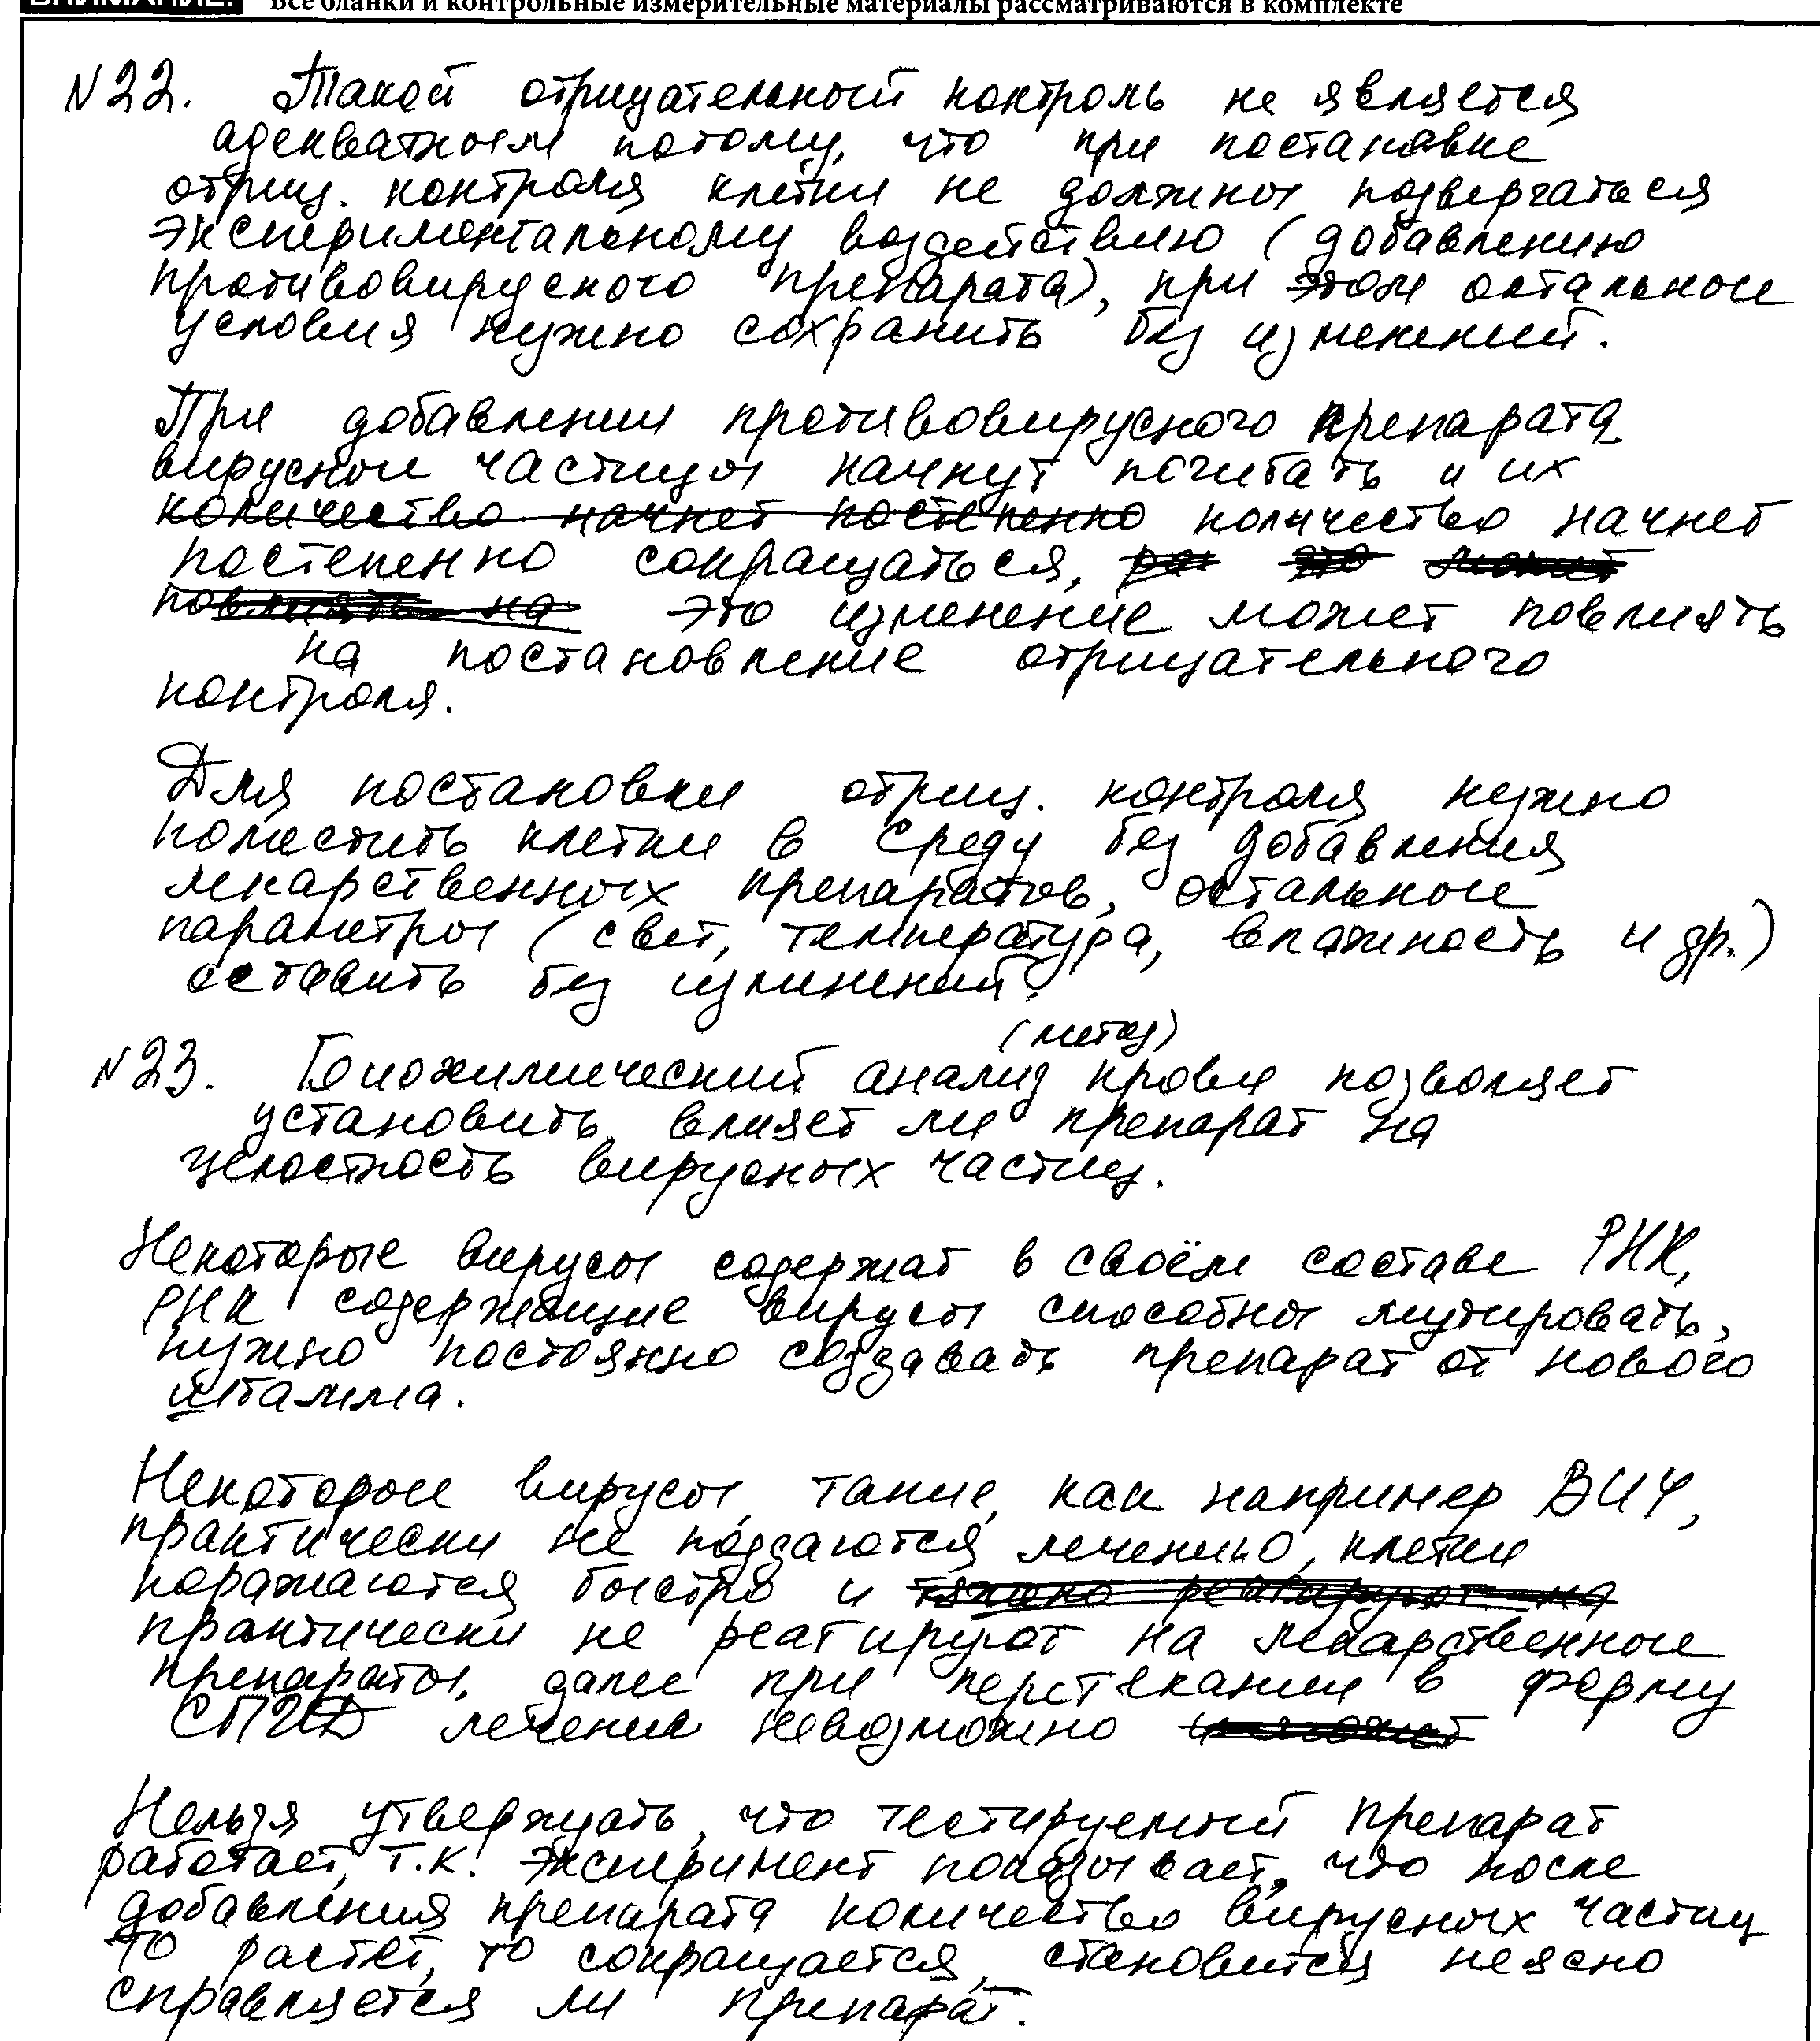 ВНИМАНИЕ! Все бланки и контрольные измерительные материалы рассматриваются в комплекте
N22. Такой отрицательный контроль не является
адекватным потому, что при постановке
отриц. контроля клетки не должны подвергаться
экспериментальному воздействию (добавлению
противовирусного препарата), при этом остальные
условия нужно сохранить без изменений.
При добавлении противовирусного препарата
вирусные частицы начнут погибать и их
количество начнет постепенно количество начнет
постепенно сокращаться, это может
повлиять на это изменение может повлиять
на постановление отрицательного
контроля.
Для постановки отриц. контроля нужно
поместить клетки в среду без добавления
лекарственных препаратов, остальные
параметры (свет, температура, влажность и др.)
оставить без изменений.
(метод)
N23. Биохимический анализ крови позволяет
установить, влияет ли препарат на
целостность вирусных частиц.
Некоторые вирусы содержат в своём составе РНК,
РНК содержащие вирусы способны мутировать,
нужно постоянно создавать препарат от нового
штамма.
Некоторые вирусы, такие, как например ВИЧ,
практически не поддаются лечению, клетки
поражаются быстро и тяжело реагируют на
практически не реагируют на лекарственные
препараты, далее при перетекании в форму
СПИД лечение невозможно
Нельзя утверждать, что тестируемый препарат
работает, т.к. эксперимент показывает, что после
добавления препарата количество вирусных частиц
то растет, то сокращается, становится неясно
справляется ли препарат.